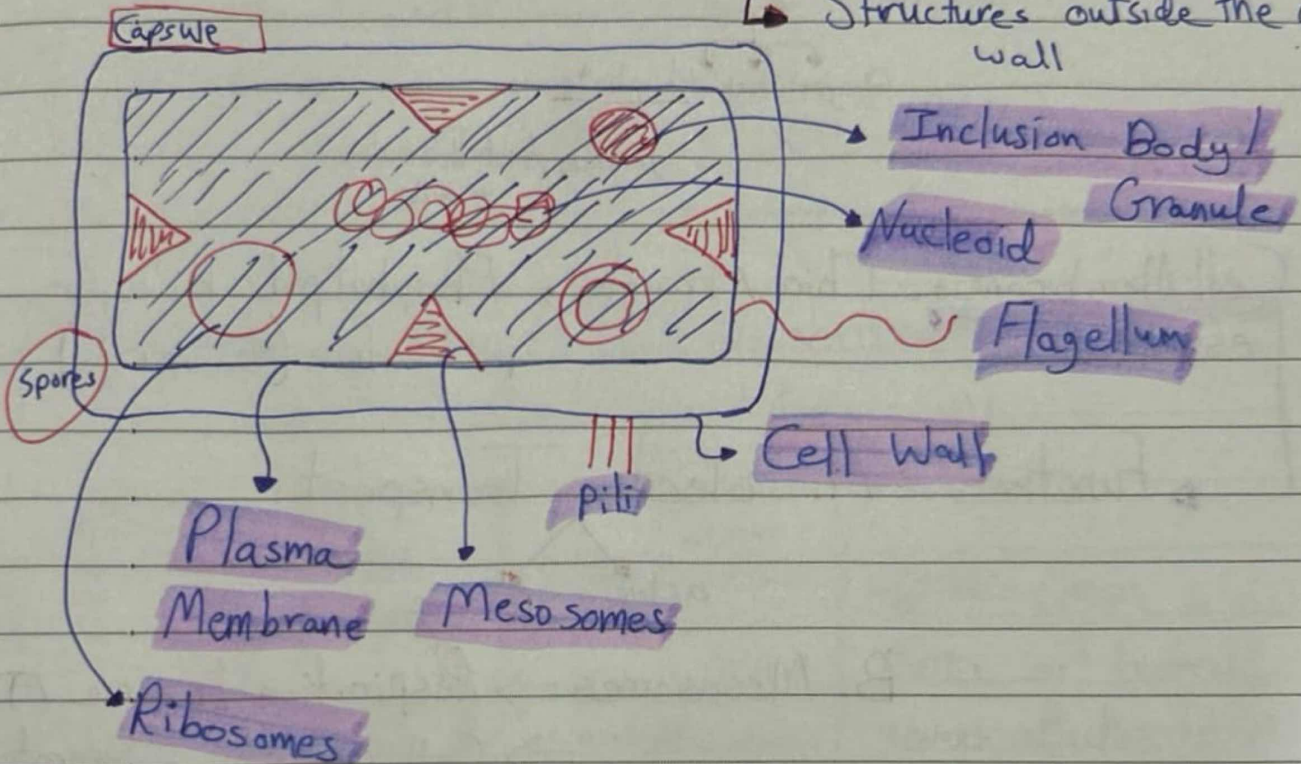 Capsule
Structures outside the
wall
Inclusion Body/
Granule
Nucleoid
Flagellum
Spores
Cell Wall
Pili
Plasma
Membrane
Mesosomes
Ribosomes